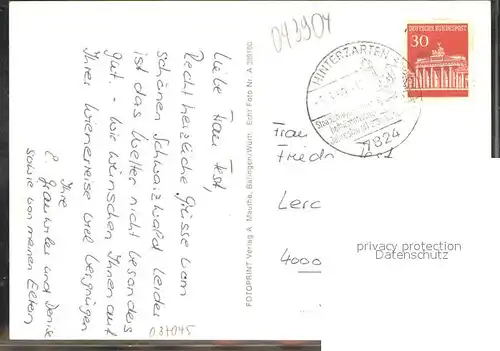 043904
Liebe Frau Ist,
Recht herzliche Grüsse vom
schönen Schwarzwald. Leider
ist das Wetter nicht besonders
gut. - Wir wünschen Ihnen auf
Ihrer Wienerreise viel Vergnügen
Ihre
und Denise
sowie von meinen Eltern
037045
FOTOPRINT Verlag A. Mauthe, Balingen/Württ. Echt Foto Nr. A
DEUTSCHE BUNDESPOST
30
HINTERZARTEN
7824
Frau
Lerc
4000
privacy protection
Datenschutz